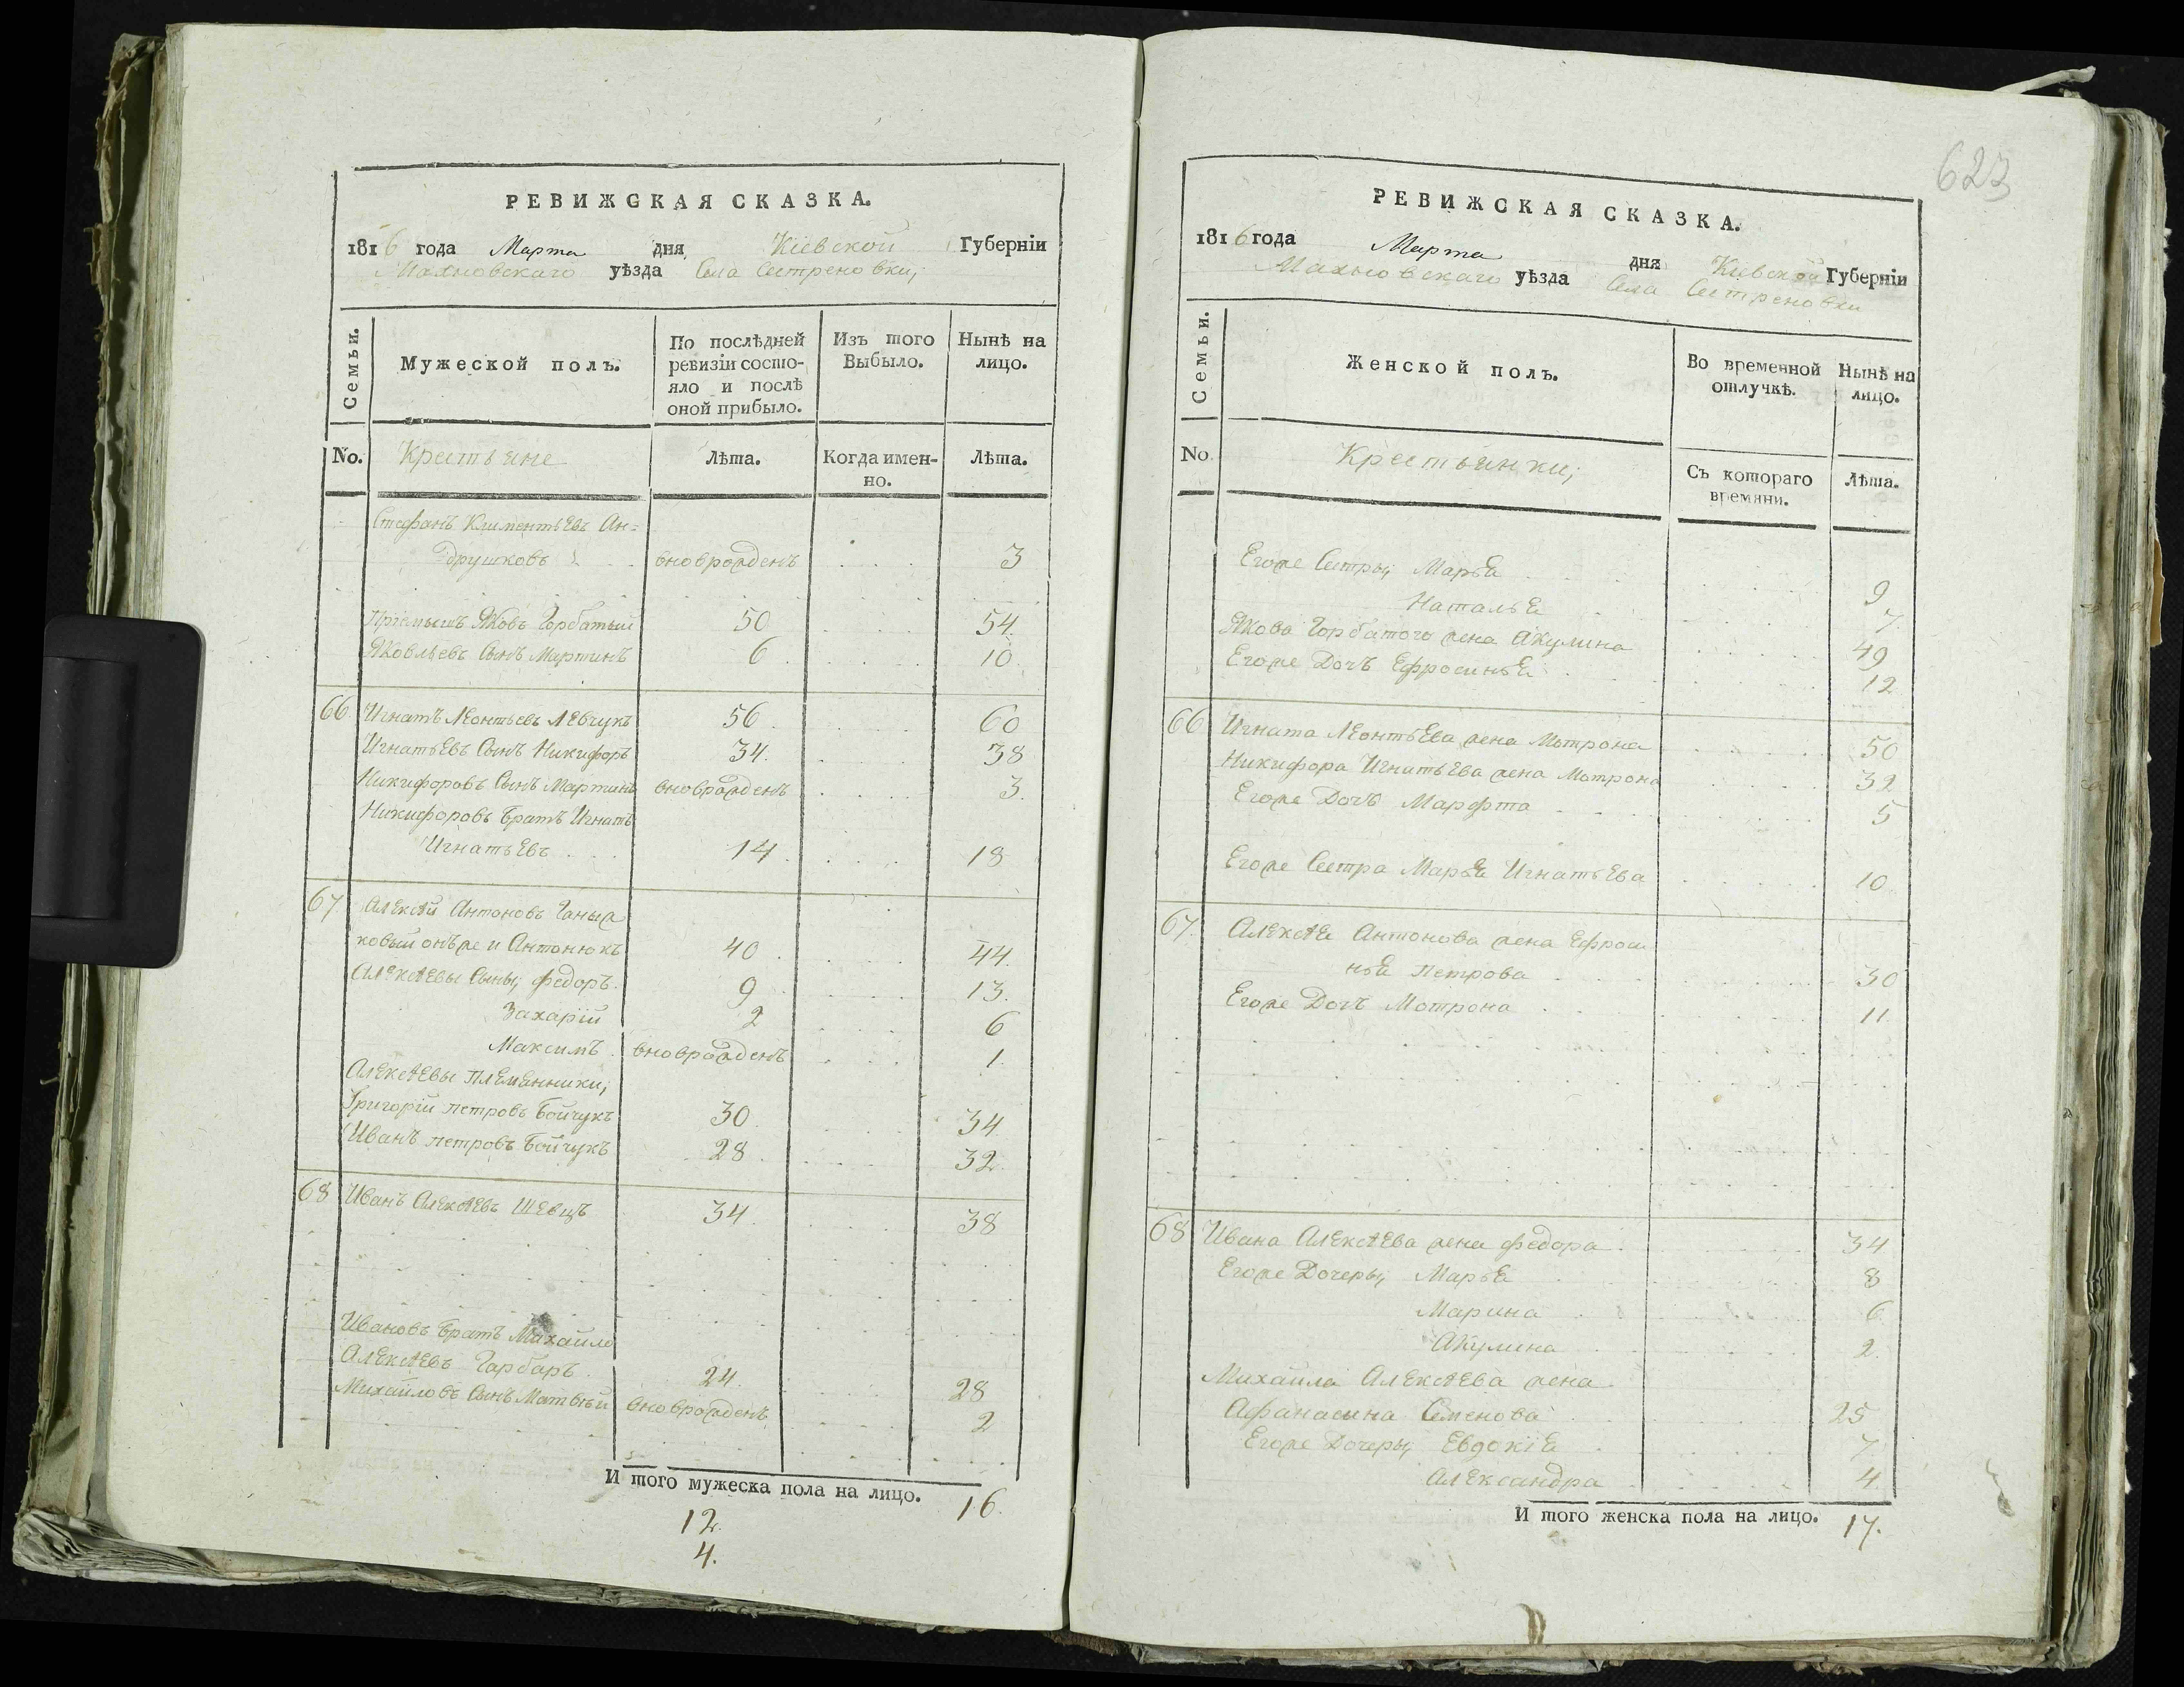 РЕВИЖСКАЯ СКАЗКА.
1816 года Марта дня Кіевской Губерніи
Махновскаго уѣзда Села Сестреновки,
Семьи.
Мужеской полъ.
По послѣдней ревизіи состояло и послѣ оной прибыло.
Изъ того Выбыло.
Нынѣ на лицо.
No. Крестьяне Лѣта. Когда именно. Лѣта.
Стефанъ Климентьевъ Ан=
друшковъ вноврожденъ 3
Пріемышъ Яковъ Горбатый 50 54.
Яковлевъ Сынъ Мартинъ 6 10.
66 Игнатъ Леонтьевъ Левчукъ 56 60
Игнатьевъ Сынъ Никифоръ 34. 38
Никифоровъ Сынъ Мартинъ вноврожденъ 3.
Никифоровъ Братъ Игнатъ
Игнатьевъ 14. 18
67 Алексѣй Антоновъ
онъже и Антонюкъ 40 44.
Алексѣевы Сыны, Федоръ 9 13.
Захарій 2 6
Максимъ вноврожденъ 1.
Алексѣевы племянники,
Григорій Петровъ Бойчукъ 30 34.
Иванъ Петровъ Бойчукъ 28 32.
68 Иванъ Алексѣевъ Швецъ 34. 38
Ивановъ Братъ Михайло
Алексѣевъ Гарбаръ 24 28
Михайловъ Сынъ Матвѣй вноврожденъ 2
И того мужеска пола на лицо. 16.
12.
4.
623
РЕВИЖСКАЯ СКАЗКА.
1816 года Марта дня Кіевской Губерніи
Махновскаго уѣзда Села Сестреновки
Семьи.
Женской полъ.
Во временной отлучкѣ.
Нынѣ на лицо.
No Крестьянки, Съ котораго времяни. Лѣта.
Егоже Сестры, Марья 9
Наталья 7
Якова Горбатого жена Акулина 49
Егоже Дочь Ефросинья 12
66 Игната Леонтьева жена Мотрона 50
Никифора Игнатьева жена Мотрона 32
Егоже Дочь Марфта 5
Егоже Сестра Марья Игнатьева 10
67. Алексѣя Антонова жена Ефроси
нья Петрова 30
Егоже Дочь Мотрона 11.
68 Ивана Алексѣева жена Федора 34
Егоже Дочеры, Марья 8
Марина 6
Акулина 2.
Михайла Алексѣева жена
Афанасина Семенова 25
Егоже Дочеры, Евдокія 7
Александра 4.
И того женска пола на лицо. 17.